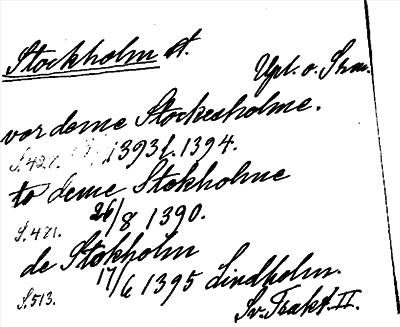 Stockholm st.
Upl. o. Srm.
vor deme Stockesholme.
S. 427. 1393 l. 1394.
to deme Stokholme
S. 471. 26/8 1390.
de Stokholm
S. 513. 17/6 1395 Lindholm.
Sv. Trakt. II.